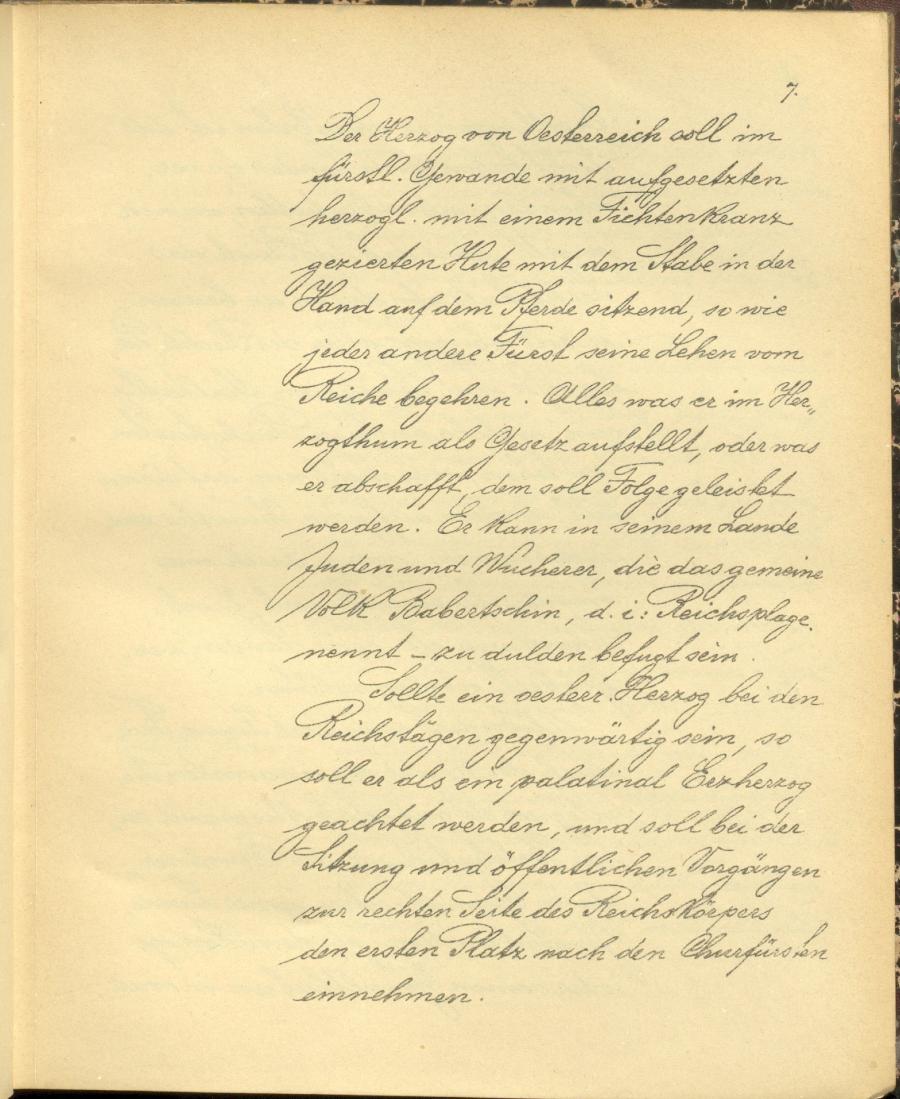 7.
Der Herzog von Oesterreich soll im
fürstl. Gewande mit aufgesetzten
herzogl. mit einem Fichtenkranz
gezierten Hute mit dem Stabe in der
Hand auf dem Pferde sitzend, so wie
jeder andere Fürst seine Lehen vom
Reiche begehren. Alles was er im Her„
zogthum als Gesetz aufstellt, oder was
er abschafft, dem soll Folge geleistet
werden. Er kann in seinem Lande
Juden und Wucherer, die das gemeine
Volk Babertschin, d. i: Reichsplage.
nennt – zu dulden befugt sein.
Sollte ein oesterr. Herzog bei den
Reichstägen gegenwärtig sein, so
soll er als ein palatinal Erzherzog
geachtet werden, und soll bei der
Sitzung und öffentlichen Vorgängen
zur rechten Seite des Reichskörpers
den ersten Platz nach den Churfürsten
einnehmen.